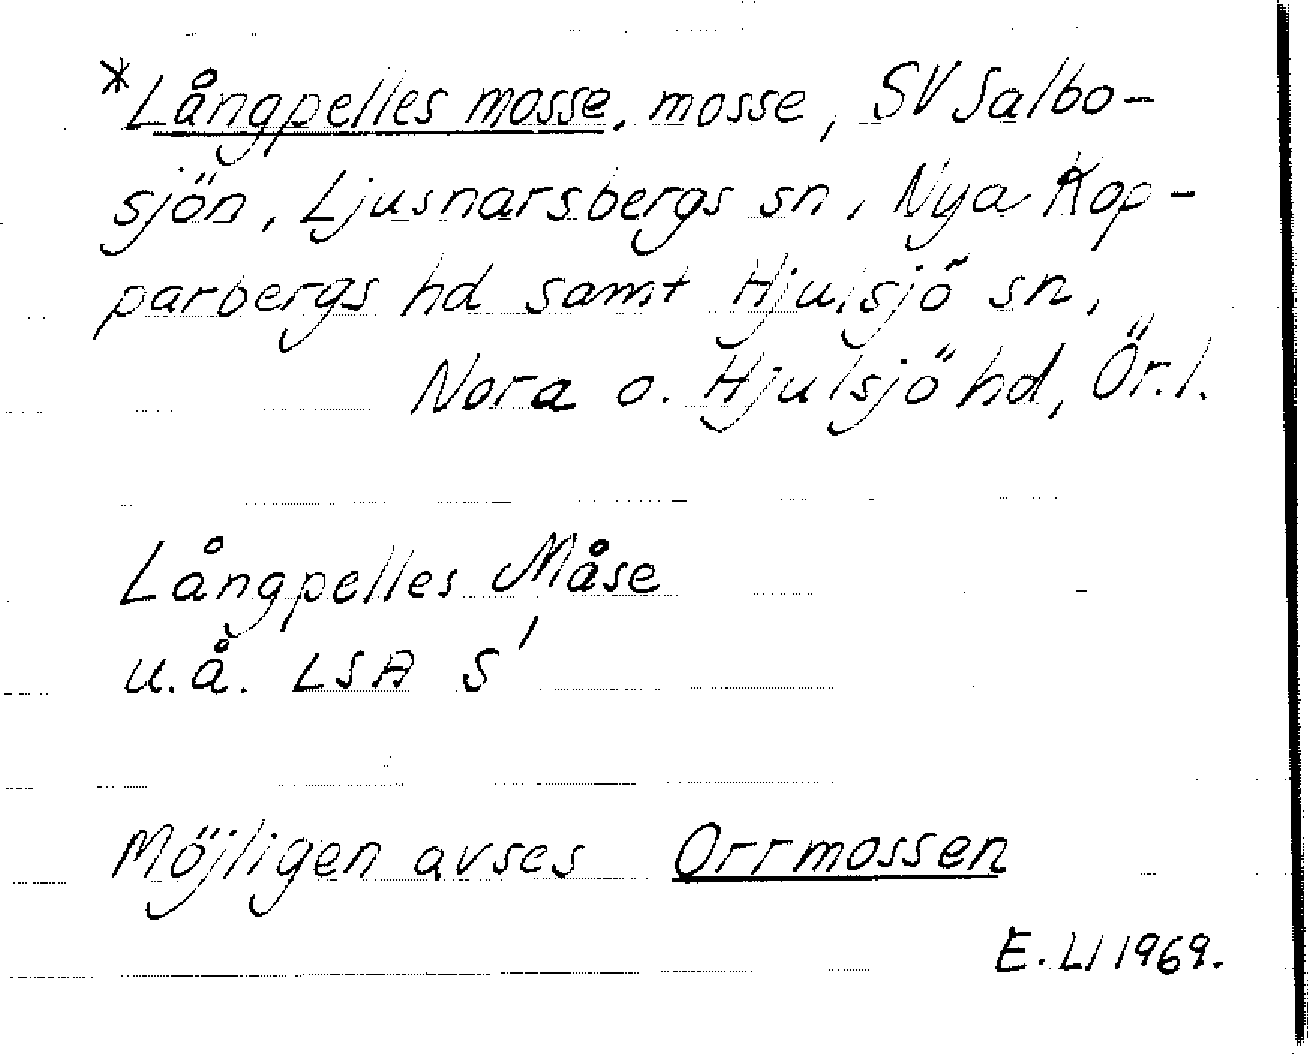 *Långpelles mosse, mosse, SV Salbo-
sjön, Ljusnarsbergs sn, Nya Kop-
parbergs hd samt Hjulsjö sn,
Nora o. Hjulsjö hd, Ör.l.
Långpelles Måse
u.å. LSA S'
Möjligen avses Orrmossen
E. LI 1969.